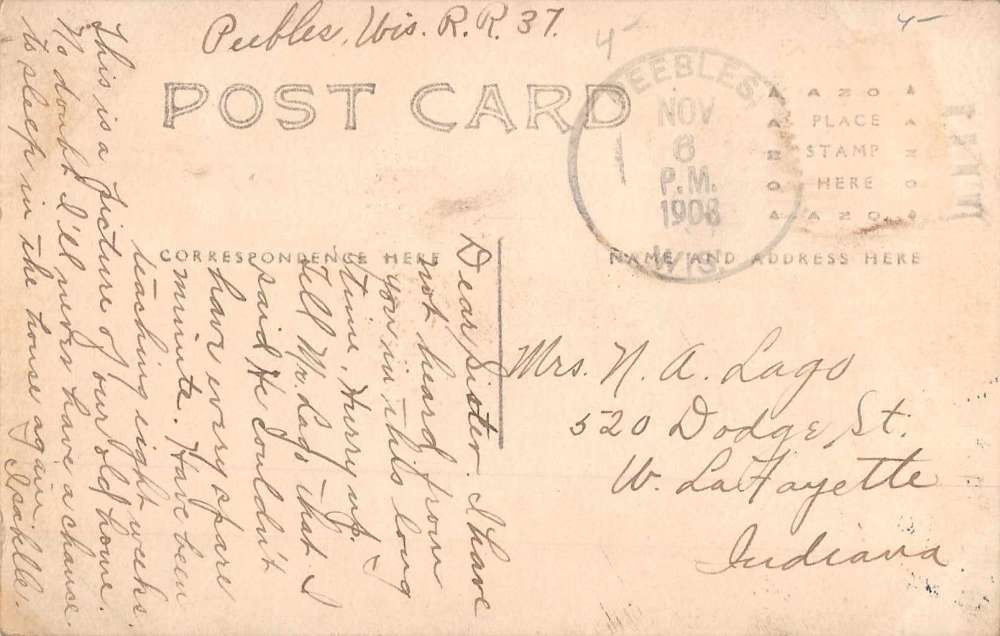 Peebles, Wis. R.R. 37.
4-
4-
POST CARD
PEEBLES,
NOV
6
P.M.
1908
WIS.
AZO
PLACE
STAMP
HERE
AZO
CORRESPONDENCE HERE
NAME AND ADDRESS HERE
Dear Sister. I have
not heard from
you in this long
time. Hurry up.
Tell Mr. Lago that I
said He couldn't
have every spare
minute. Have been
teaching eight weeks.
This is a picture of our old home.
No doubt I'll never have a chance
to sleep in the house again.
Isabelle.
Mrs. N. A. Lago
520 Dodge St.
W. LaFayette
Indiana